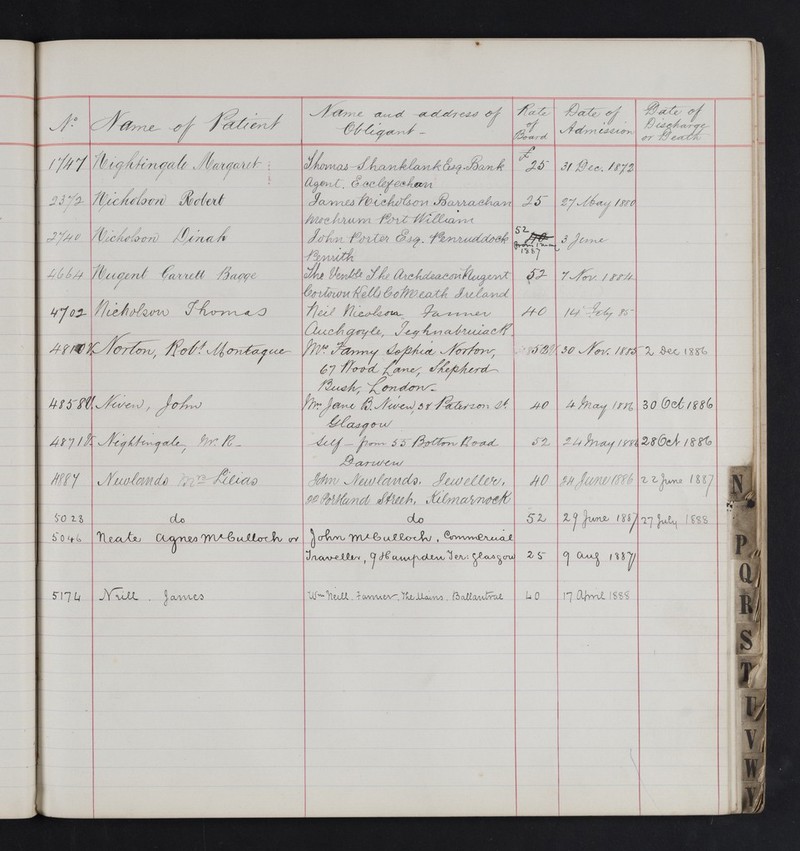 No. Name of Patient Name and address of Obligant - Rate of Board Date of Admission Date of Discharge or Death
1747 Nightingale Margaret Thomas Shanklank Esq. Bank £25 31 Dec. 1872
Agent, Ecclefechan
2372 Nicholson Robert James Nicholson Barrachan 25 27 May 1880
Mochrum Port William
2740 Nicholson Dinah John Porter Esq. Penruddock 52 3 June
Penrith 1887
4664 Nugent Garrett Bagge The Venble The Archdeacon Nugent 52 7 Nov. 1884
Cortown Kells Co Meath Ireland
4702 Nicholson Thomas Neil Nicolson Farmer 40 14 July 85
Auchgoyle, Teghnabruiack
Norton, Robt. Montague Mrs. Fanny Sophia Norton, 52 30 Nov. 1885 2 Dec 1886
67 Wood Lane, Shepherd
Bush, London.
4858 Niven, John Mrs Jane B. Niven, 38 Paterson St. 40 4 May 1886 30 Oct 1886
Glasgow
4871 Nightingale, Mr. R. Self - from 55 Bolton Road 52 24 May 1886 28 Oct 1886
Darwen
4887 Newlands Mrs Lilias John Newlands, Jeweller, 40 24 June 1886 22 June 1887
Portland Street, Kilmarnock
5023 do do 52 29 June 1887 27 July 1888
5046 Neale Agnes McCulloch or John McCulloch, Commercial
Traveller, 9 Hampden Ter: Glasgow 25 9 Aug 1887
5174 Neill. James Wm Neill. Farmer. The Mains. Ballantrae 40 17 April 1888
N
P
Q
R
S
T
U
V
W
Y